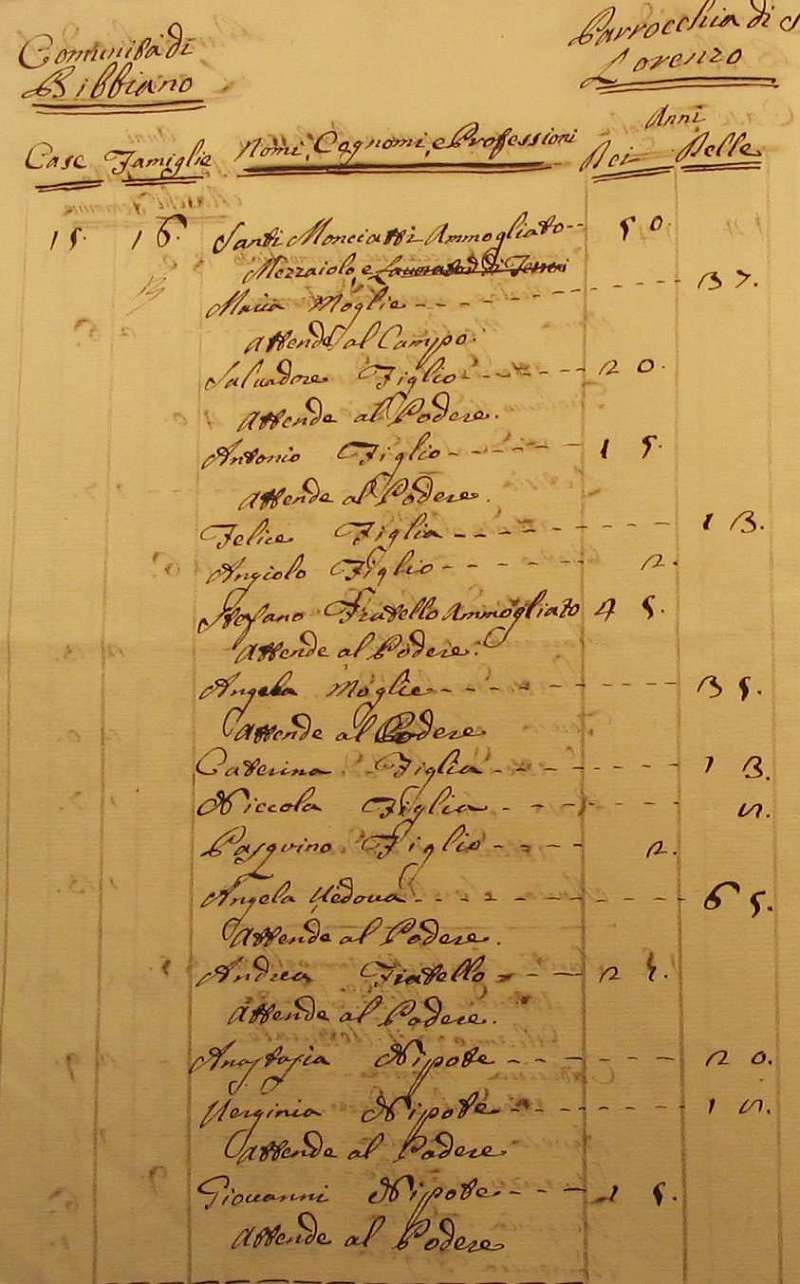 Comunità di
Bibbiano
Parrocchia di S
Lorenzo
Case Famiglie Nomi, Cognomi, e Professioni Anni
Dei Delle
15. 16. Santi Monciatti Ammogliato 50.
Mezzaiolo, e Lavorator di Terreni
Maria Moglie 37.
Attende al Campo.
Salvadore Figlio 20.
Attende al Podere.
Antonio Figlio 15.
Attende al Podere.
Felice Figlia 13.
Angiolo Figlio 2.
Stefano Fratello Ammogliato 45.
Attende al Podere.
Angela Moglie 35.
Attende al Podere
Caterina Figlia 13.
Niccola Figlia
Pasquino Figlio 2.
Angela Vedova 65.
Attende al Podere.
Andrea Fratello
Attende al Podere.
Anastasia Nipote 20.
Verginia Nipote
Attende al Podere
Giovanni Nipote 15.
Attende al Podere